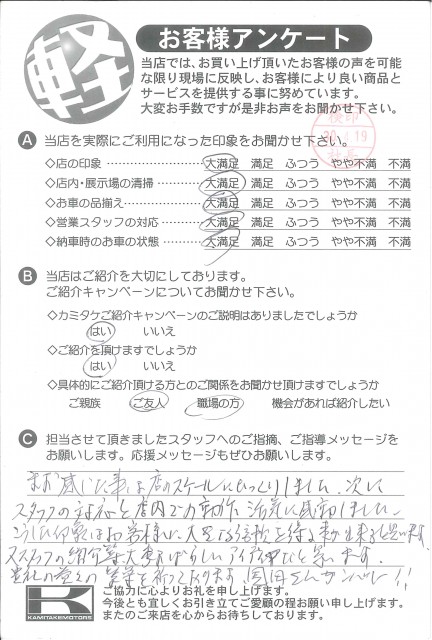 軽
お客様アンケート
当店では、お買い上げ頂いたお客様の声を可能
な限り現場に反映し、お客様により良い商品と
サービスを提供する事に努めています。
大変お手数ですが是非お声をお聞かせ下さい。
検印
A 当店を実際にご利用になった印象をお聞かせ下さい。
◇店の印象 大満足 満足 ふつう やや不満 不満
◇店内・展示場の清掃 大満足 満足 ふつう やや不満 不満
◇お車の品揃え 大満足 満足 ふつう やや不満 不満
◇営業スタッフの対応 大満足 満足 ふつう やや不満 不満
◇納車時のお車の状態 大満足 満足 ふつう やや不満 不満
B 当店はご紹介を大切にしております。
ご紹介キャンペーンについてお聞かせ下さい。
◇カミタケご紹介キャンペーンのご説明はありましたでしょうか
はい いいえ
◇ご紹介を頂けますでしょうか
はい いいえ
◇具体的にご紹介頂ける方とのご関係をお聞かせ頂けますでしょうか
ご親族 ご友人 職場の方 機会があれば紹介したい
C 担当させて頂きましたスタッフへのご指摘、ご指導メッセージを
お願いします。応援メッセージもぜひお願いします。
まず感じた事は店のスケールにびっくりしました。次に
スタッフの対応と店内での動作に活気に感動しました。
こうした印象はお客様に大きな信頼を得る事が出来ると思います。
スタッフの紹介 大変すばらしいアイデアだと思います。
ガンバレー!!
K
KAMITAKEMOTORS
ご協力に心よりお礼を申し上げます。
今後とも宜しくお引き立てご愛顧の程お願い申し上げます。
またのご来店を心からお待ちしております。